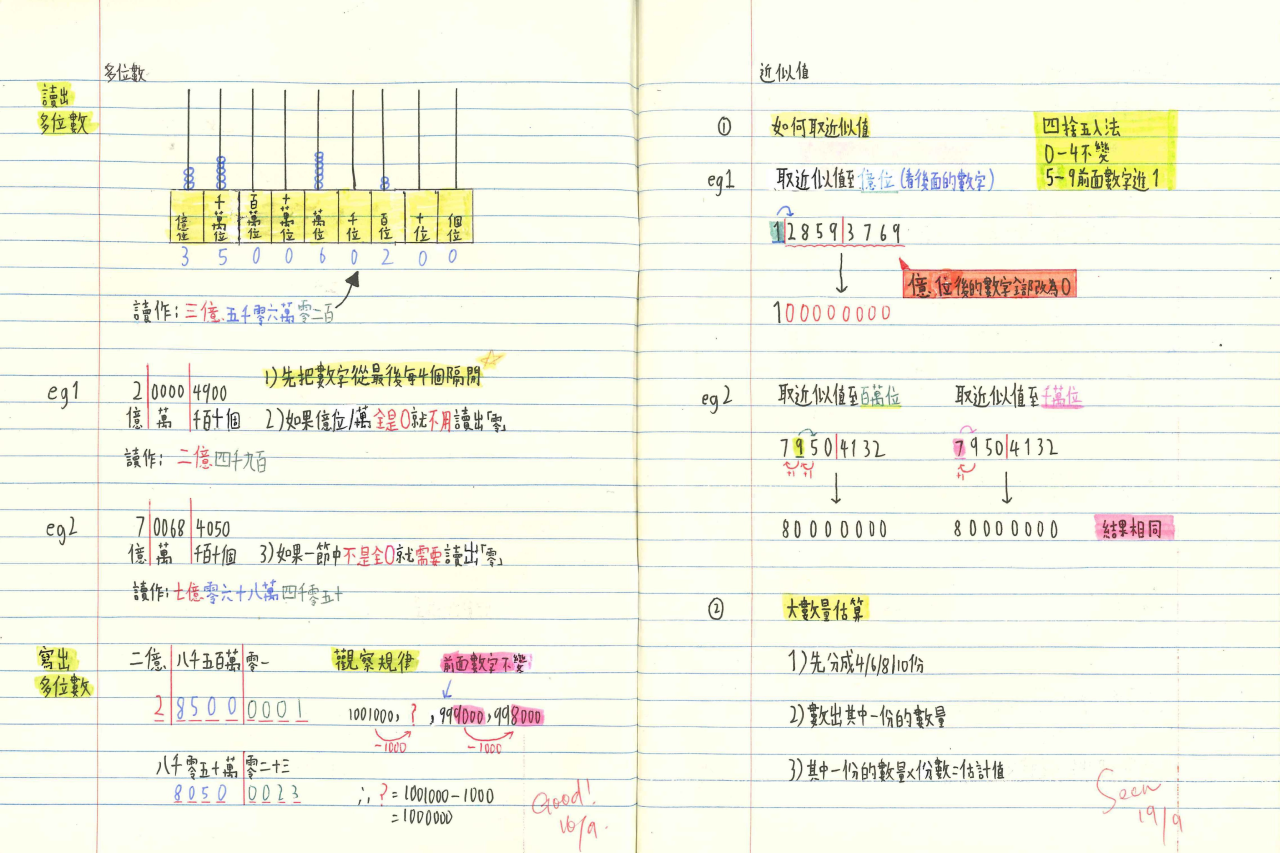 多位數
讀出
多位數
億位 千萬位 百萬位 十萬位 萬位 千位 百位 十位 個位
3 5 0 0 6 0 2 0 0
讀作：三億五千零六萬零二百
eg1
2|0000|4900
億 萬 千百十個
1)先把數字從最後每4個隔開
2)如果億位/萬全是0就不用讀出「零」
讀作：二億四千九百
eg2
7|0068|4050
億 萬 千百十個
3)如果一節中不是全0就需要讀出「零」
讀作：七億零六十八萬四千零五十
寫出
多位數
二億|八千五百萬|零一
2 8500 0001
八千零五十萬|零二十三
8050 0023
觀察規律
前面數字不變
1001000, ?, 999000, 998000
-1000 -1000
∴ ? = 1001000-1000
=1000000
Good!
16/9.
近似值
① 如何取近似值
四捨五入法
0-4不變
5-9前面數字進1
eg1 取近似值至億位(看後面的數字)
1|2859|3769
億位後的數字全部改為0
100000000
eg2 取近似值至百萬位 取近似值至千萬位
7950|4132 7950|4132
+1 +1 +1
80000000 80000000 結果相同
② 大數量估算
1)先分成4/6/8/10份
2)數出其中一份的數量
3)其中一份的數量×份數=估計值
Seen
19/9